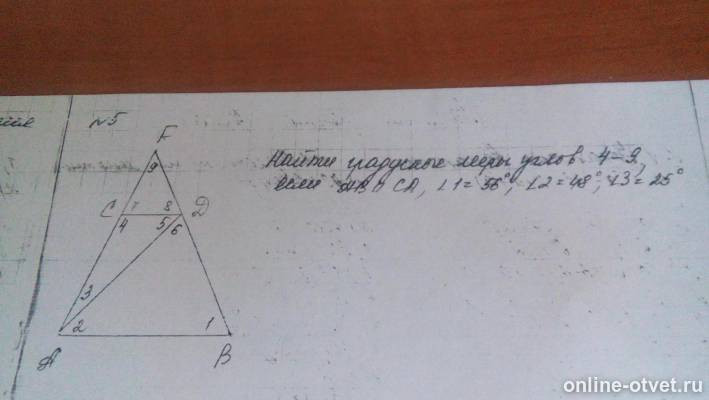 №5
F
Найти градусные меры углов 4–9,
9
если AB || CD, ∠1 = 56°, ∠2 = 48°, ∠3 = 25°
C 7 8 D
4 5 6
3
2 1
A B
online-otvet.ru